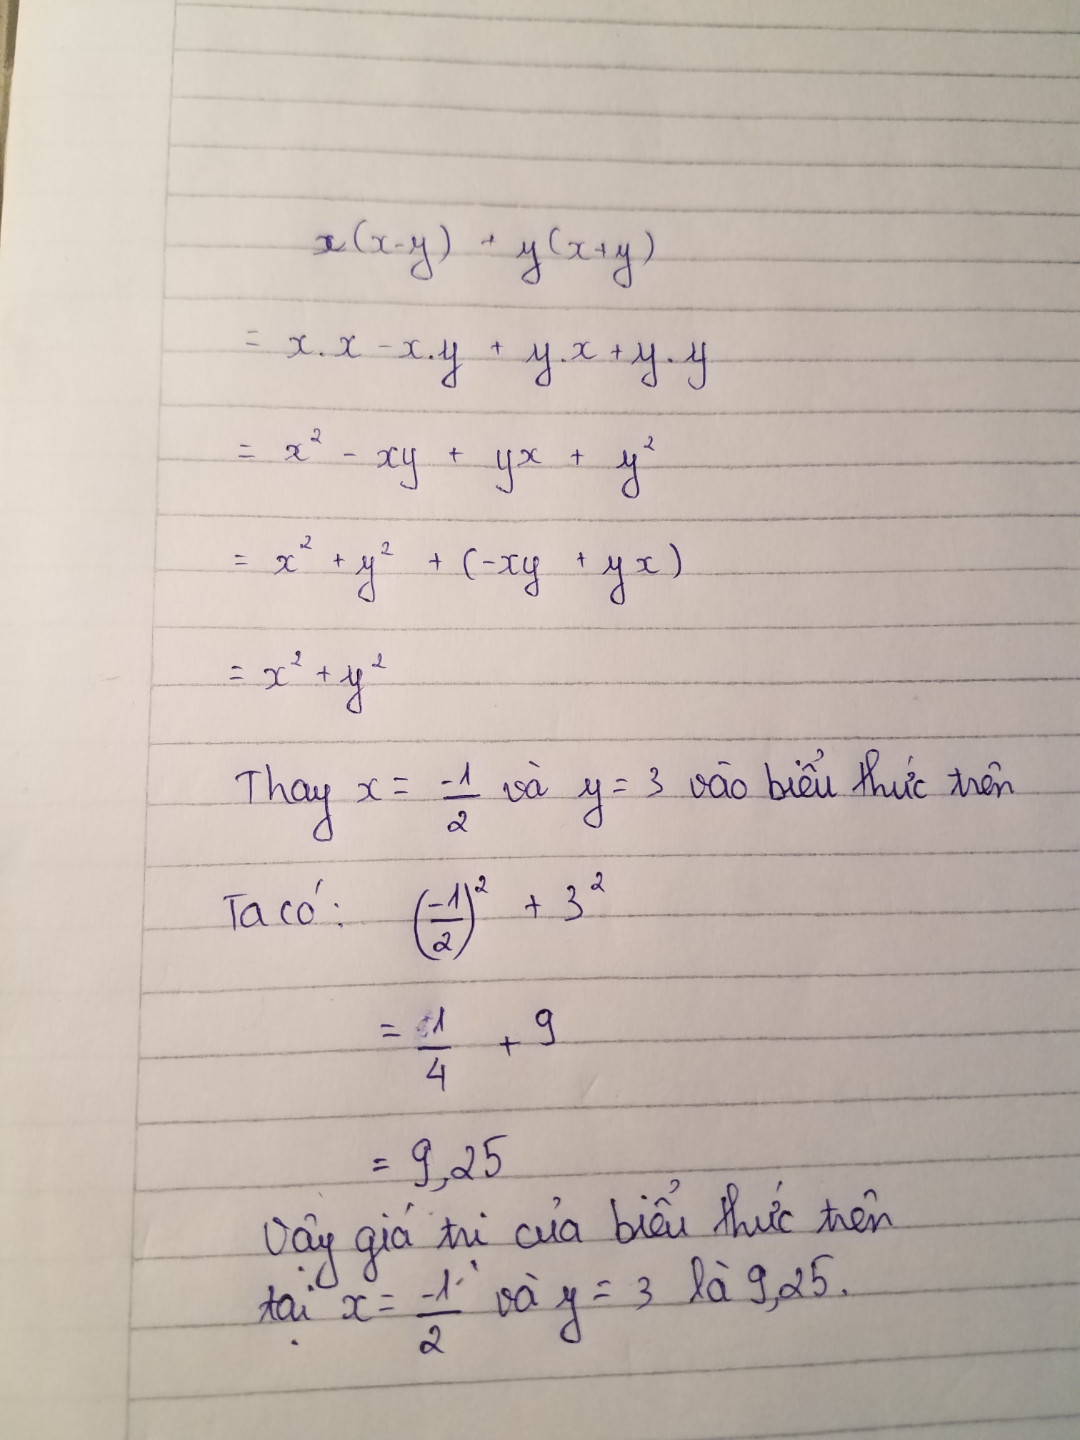 x(x-y) + y(x+y)
= x.x - x.y + y.x + y.y
= x² - xy + yx + y²
= x² + y² + (-xy + yx)
= x² + y²
Thay x = -1/2 và y = 3 vào biểu thức trên
Ta có: (-1/2)² + 3²
= 1/4 + 9
= 9,25
Vậy giá trị của biểu thức trên
tại x = -1/2 và y = 3 là 9,25.